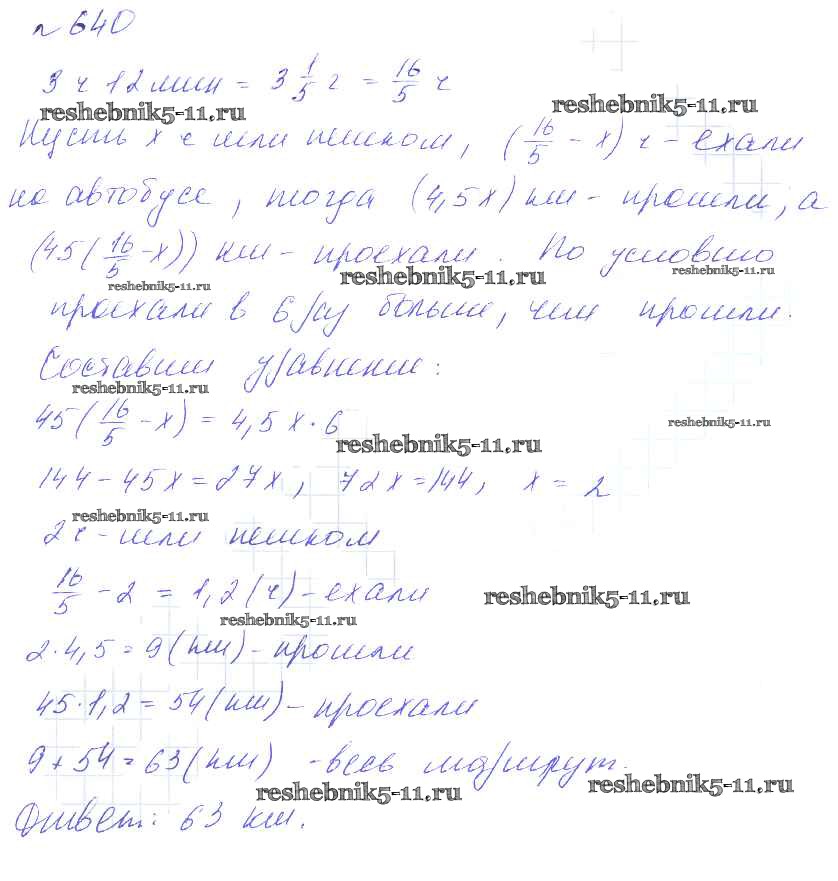 № 640
3 ч 12 мин = 3 1/5 ч = 16/5 ч
reshebnik5-11.ru reshebnik5-11.ru
Пусть x ч шли пешком, (16/5 - x) ч - ехали
на автобусе, тогда (4,5x) км - прошли, а
(45(16/5 - x)) км - проехали. По условию
reshebnik5-11.ru reshebnik5-11.ru reshebnik5-11.ru
проехали в 6 раз больше, чем прошли.
Составим уравнение:
reshebnik5-11.ru
45(16/5 - x) = 4,5x·6
reshebnik5-11.ru reshebnik5-11.ru
144 - 45x = 27x, 72x = 144, x = 2
reshebnik5-11.ru
2 ч - шли пешком
16/5 - 2 = 1,2 (ч) - ехали
reshebnik5-11.ru reshebnik5-11.ru
2·4,5 = 9 (км) - прошли
45·1,2 = 54 (км) - проехали
9 + 54 = 63 (км) - весь маршрут.
reshebnik5-11.ru reshebnik5-11.ru
Ответ: 63 км.